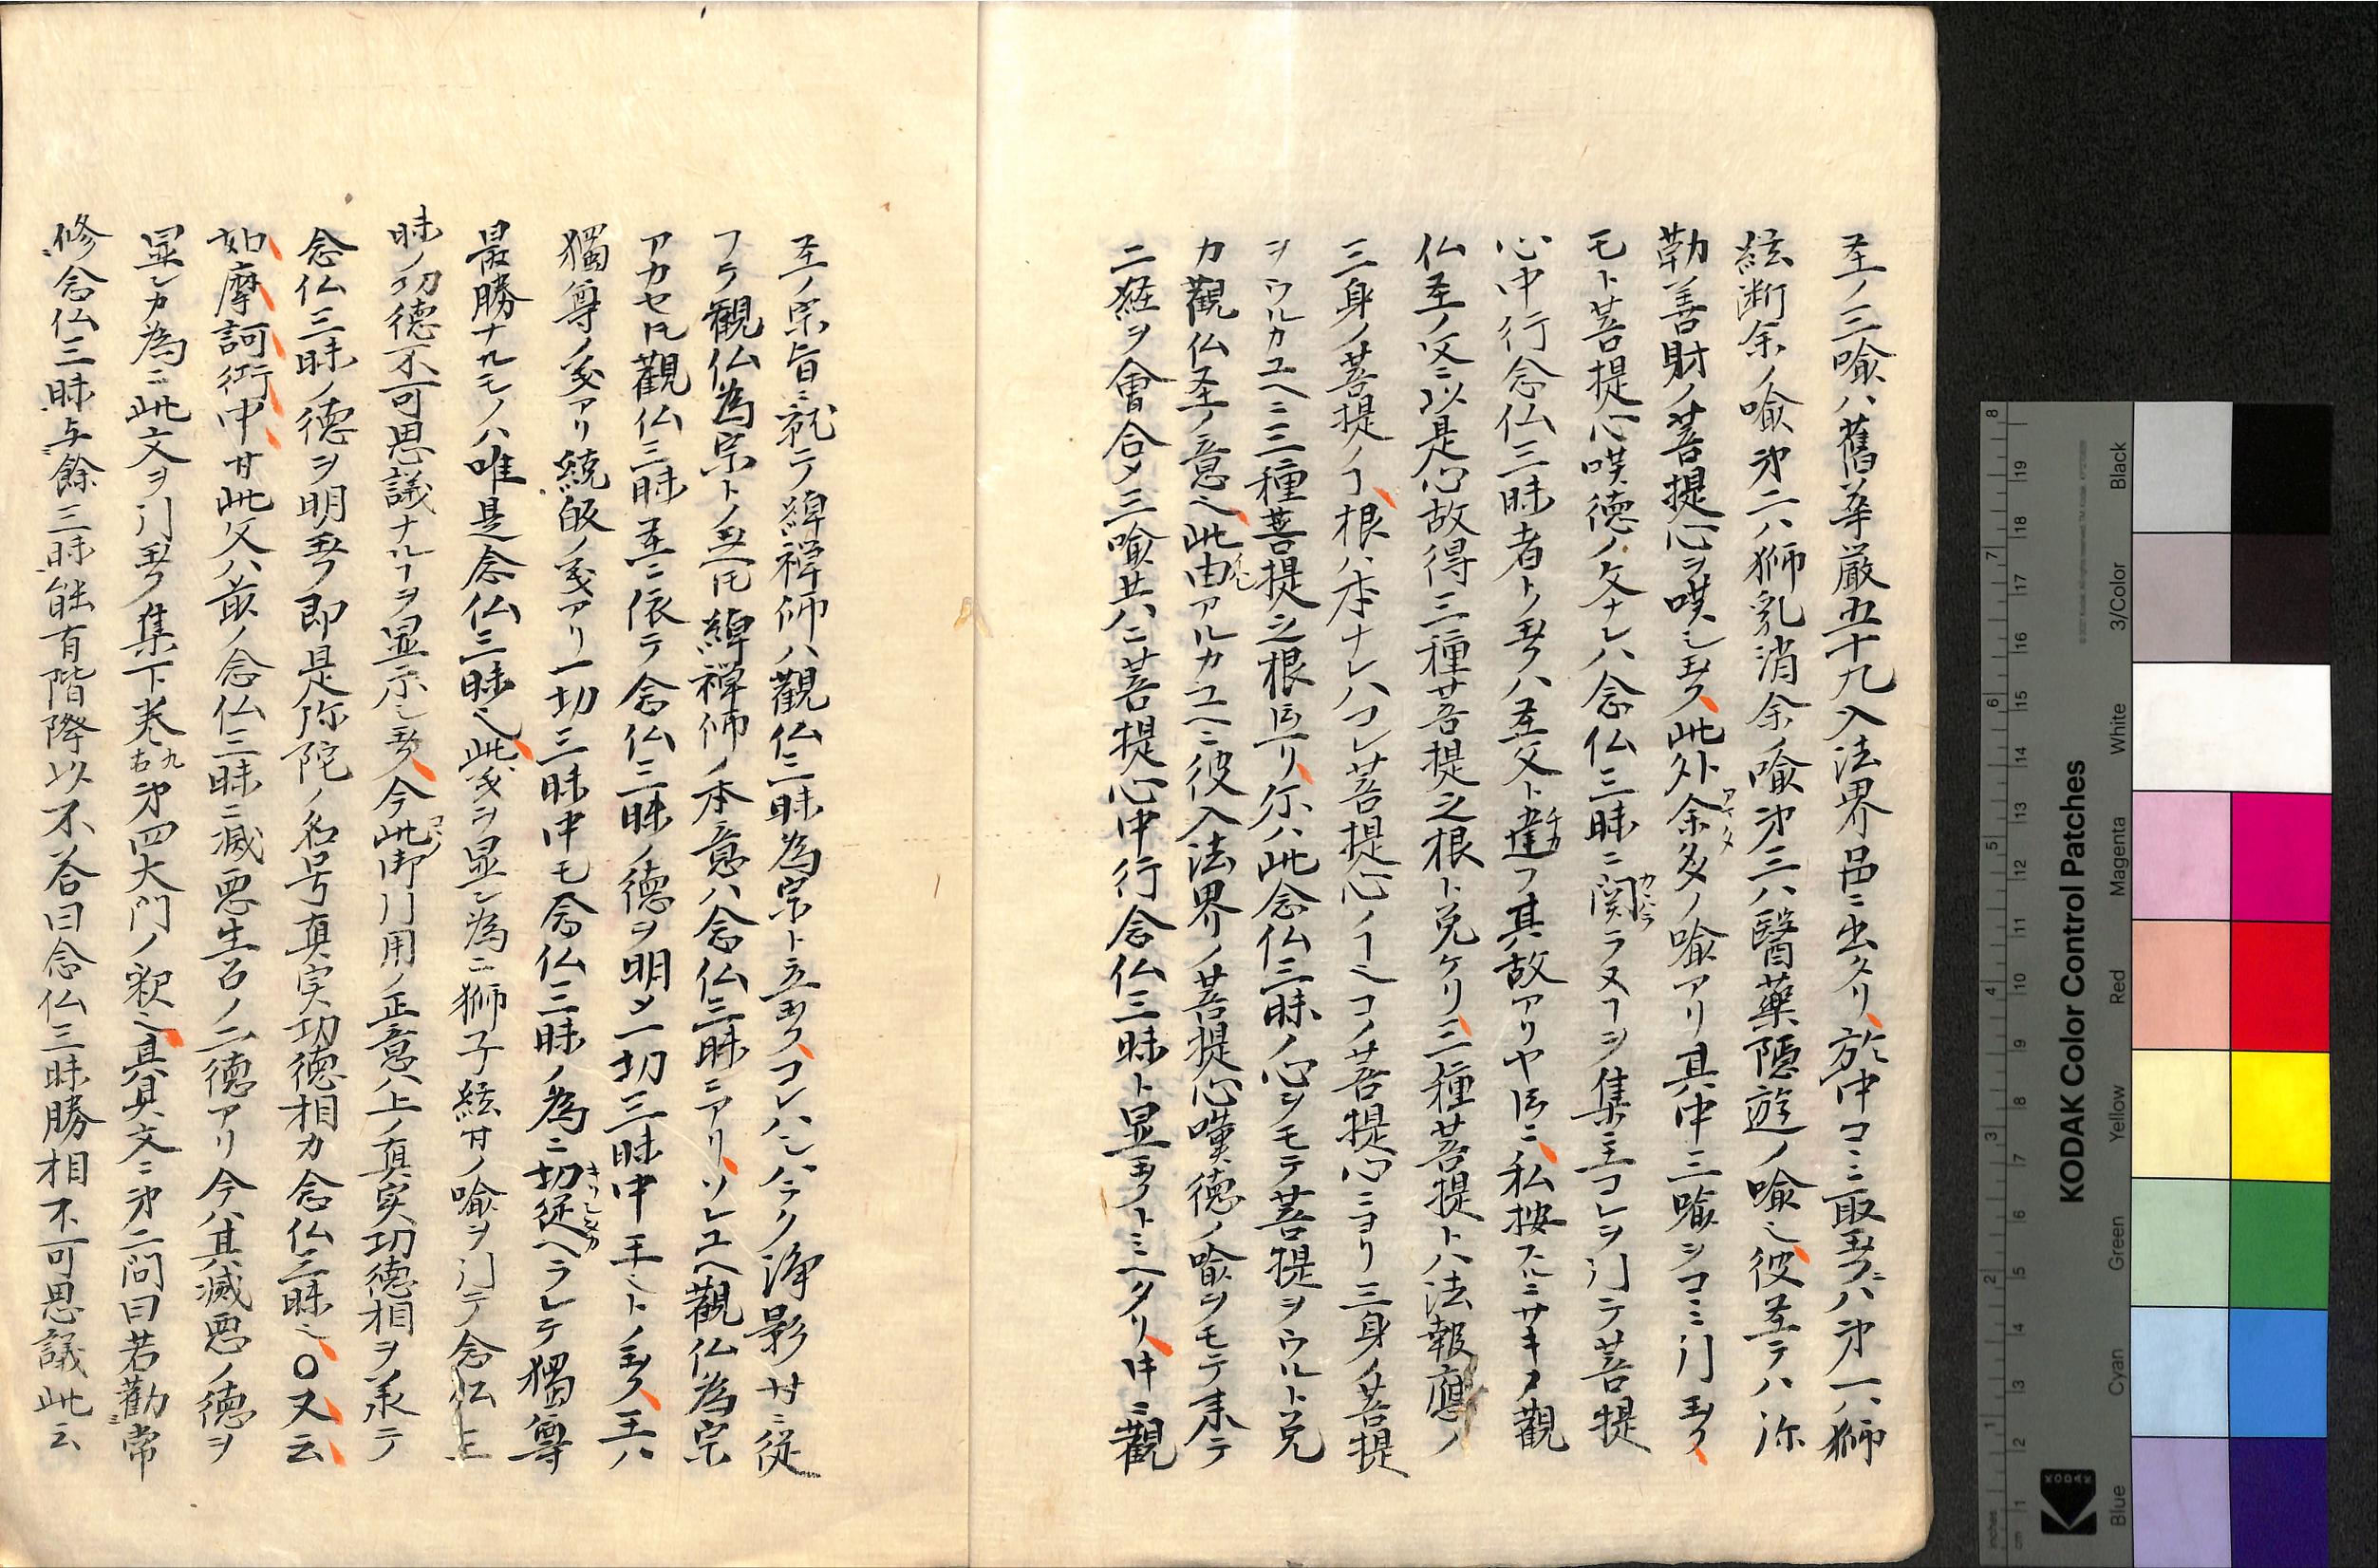 圣ノ三喩ハ舊華厳五十九入法界品ニ出タリ於中コヽニ取玉フハ㐧一ハ獅
絃断余ノ喩㐧二ハ獅乳消余ノ喩㐧三ハ醫藥隠遊ノ喩也彼圣テハ弥
勒ノ善財ノ菩提心ヲ嘆シ玉フ此外余多ノ喩アリ其中三喩ヲコヽニ引玉フ
モト菩提心嘆徳ノ文ナレハ念仏三昧ニ関ラヌヿヲ集主コレヲ引テ菩提
心中行念仏三昧者トノ玉フハ圣文ト違フ其故アリヤ𪜈ニ私按スルニサキノ觀
仏圣ノ文ニ以是心故得三種菩提之根ト兑ケリ三種菩提トハ法報應ノ
三身ノ菩提ノヿ根ハ本ナレハコレ菩提心ノヿ也コノ菩提心ニヨリ三身ノ菩提
ヲウルカユヘニ三種菩提之根𪜈リ尓ハ此念仏三昧ノ心ヲモテ菩提ヲウルト兑
カ觀仏圣ノ意也此由アルカユヘニ彼入法界ノ菩提心嘆徳ノ喩ヲモテ来テ
二経ヲ會合メ三喩共ハニ菩提心中行念仏三昧ト显玉フトミヘタリ𠂰ニ觀
圣ノ宗旨ニ就テ綽禅师ハ觀仏三昧為宗ト立玉フコレハシハラク浄影サニ従
フラ觀仏為宗トノ玉𪜈綽禅师ノ本意ハ念仏三昧ニアリソレユヘ觀仏為宗
アカセ𪜈觀仏三昧圣ニ依テ念仏三昧ノ徳ヲ明メ一切三昧中王也トノ玉フ王ハ
獨尊ノ义アリ統敀ノ义アリ一切三昧中モ念仏三昧ノ為ニ切従ヘラレテ獨尊
最勝ナルモノハ唯是念仏三昧也此义ヲ显シ為ニ獅子絃サノ喩ヲ引テ念仏三
昧ノ功德不可思議ナルヿヲ显示シ玉フ今此御引用ノ正意ハ上ノ真実功徳相ヲ承テ
念仏三昧ノ徳ヲ明玉フ即是弥陀ノ名号真実功徳相カ念仏三昧也〇又云
如摩訶衍中サ此文ハ前ノ念仏三昧ニ滅悪生善ノ二徳アリ今ハ其滅悪ノ徳ヲ
显シカ為ニ此文ヲ引玉フ集下巻九右㐧四大門ノ釈也具具文ニ㐧二問曰若勸常
修念仏三昧与餘三昧能有階降以不荅曰念仏三昧勝相不可思議此云
KODAK Color Control Patches
Blue Cyan Green Yellow Red Magenta White 3/Color Black